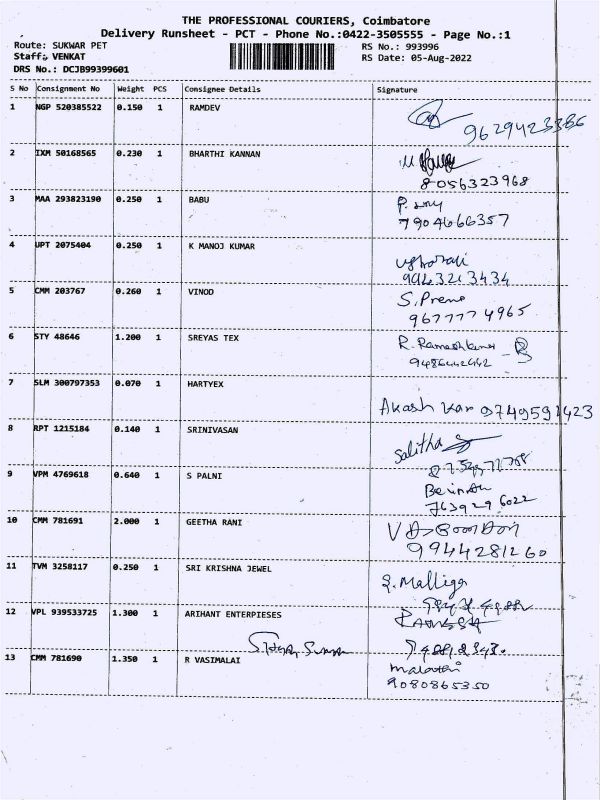 THE PROFESSIONAL COURIERS, Coimbatore
Delivery Runsheet - PCT - Phone No.:0422-3505555 - Page No.:1
Route: SUKWAR PET RS No.: 993996
Staff: VENKAT RS Date: 05-Aug-2022
DRS No.: DCJB99399601
S No Consignment No Weight PCS Consignee Details Signature
1 NGP 520385522 0.150 1 RAMDEV
9629423386
2 IXM 50168565 0.230 1 BHARTHI KANNAN
8056323968
3 MAA 293823190 0.250 1 BABU
7904666357
4 UPT 2075404 0.250 1 K MANOJ KUMAR
9943213434
5 CMM 203767 0.260 1 VINOD S. Prema
9677774965
6 STY 48646 1.200 1 SREYAS TEX R. Rameshkumar
9486442442
7 SLM 300797353 0.070 1 HARTYEX
Akash Kar 9749591423
8 RPT 1215184 0.140 1 SRINIVASAN
Salitha
9 VPM 4769618 0.640 1 S PALNI
7639296022
10 CMM 781691 2.000 1 GEETHA RANI
9944281260
11 TVM 3258117 0.250 1 SRI KRISHNA JEWEL
S. Malliga
12 VPL 939533725 1.300 1 ARIHANT ENTERPIESES
RAMESH
13 CMM 781690 1.350 1 R VASIMALAI
Malathi
9080865350